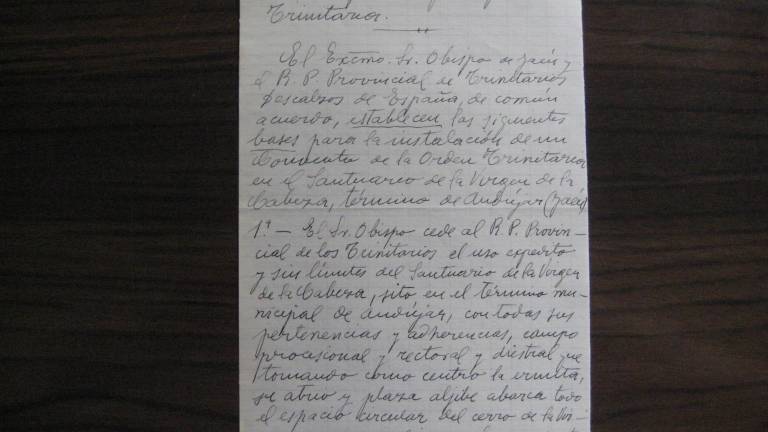 Trinitarios.
El Excmo. Sr. Obispo de Jaén y
el R. P. Provincial de Trinitarios
Descalzos de España, de común
acuerdo, establecen las siguientes
bases para la instalación de un
Convento de la Orden Trinitaria
en el Santuario de la Virgen de la
Cabeza, término de Andújar (Jaén)
1ª — El Sr. Obispo cede al R. P. Provin-
cial de los Trinitarios el uso expedito
y sin límites del Santuario de la Virgen
de la Cabeza, sito en el término mu-
nicipal de Andújar, con todas sus
pertenencias y adherencias, campo
procesional y rectoral y diestral que
tomando como centro la ermita,
su atrio y plaza aljibe abarca todo
el espacio circular del cerro de la Vir-